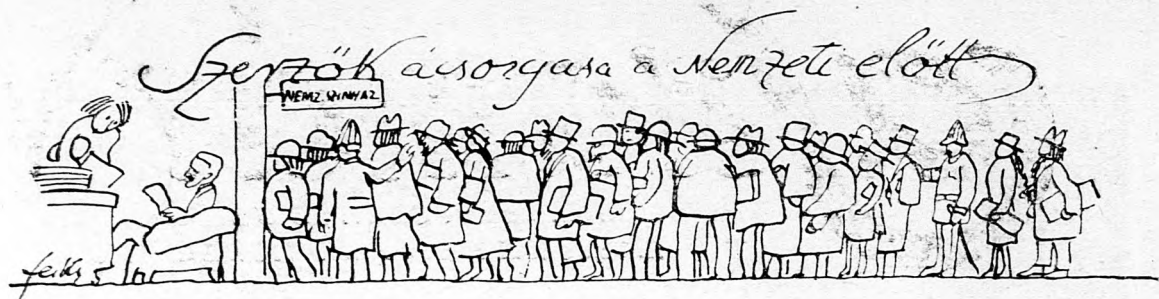 Szerzők ácsorgása a Nemzeti előtt
NEMZ. SZINHAZ